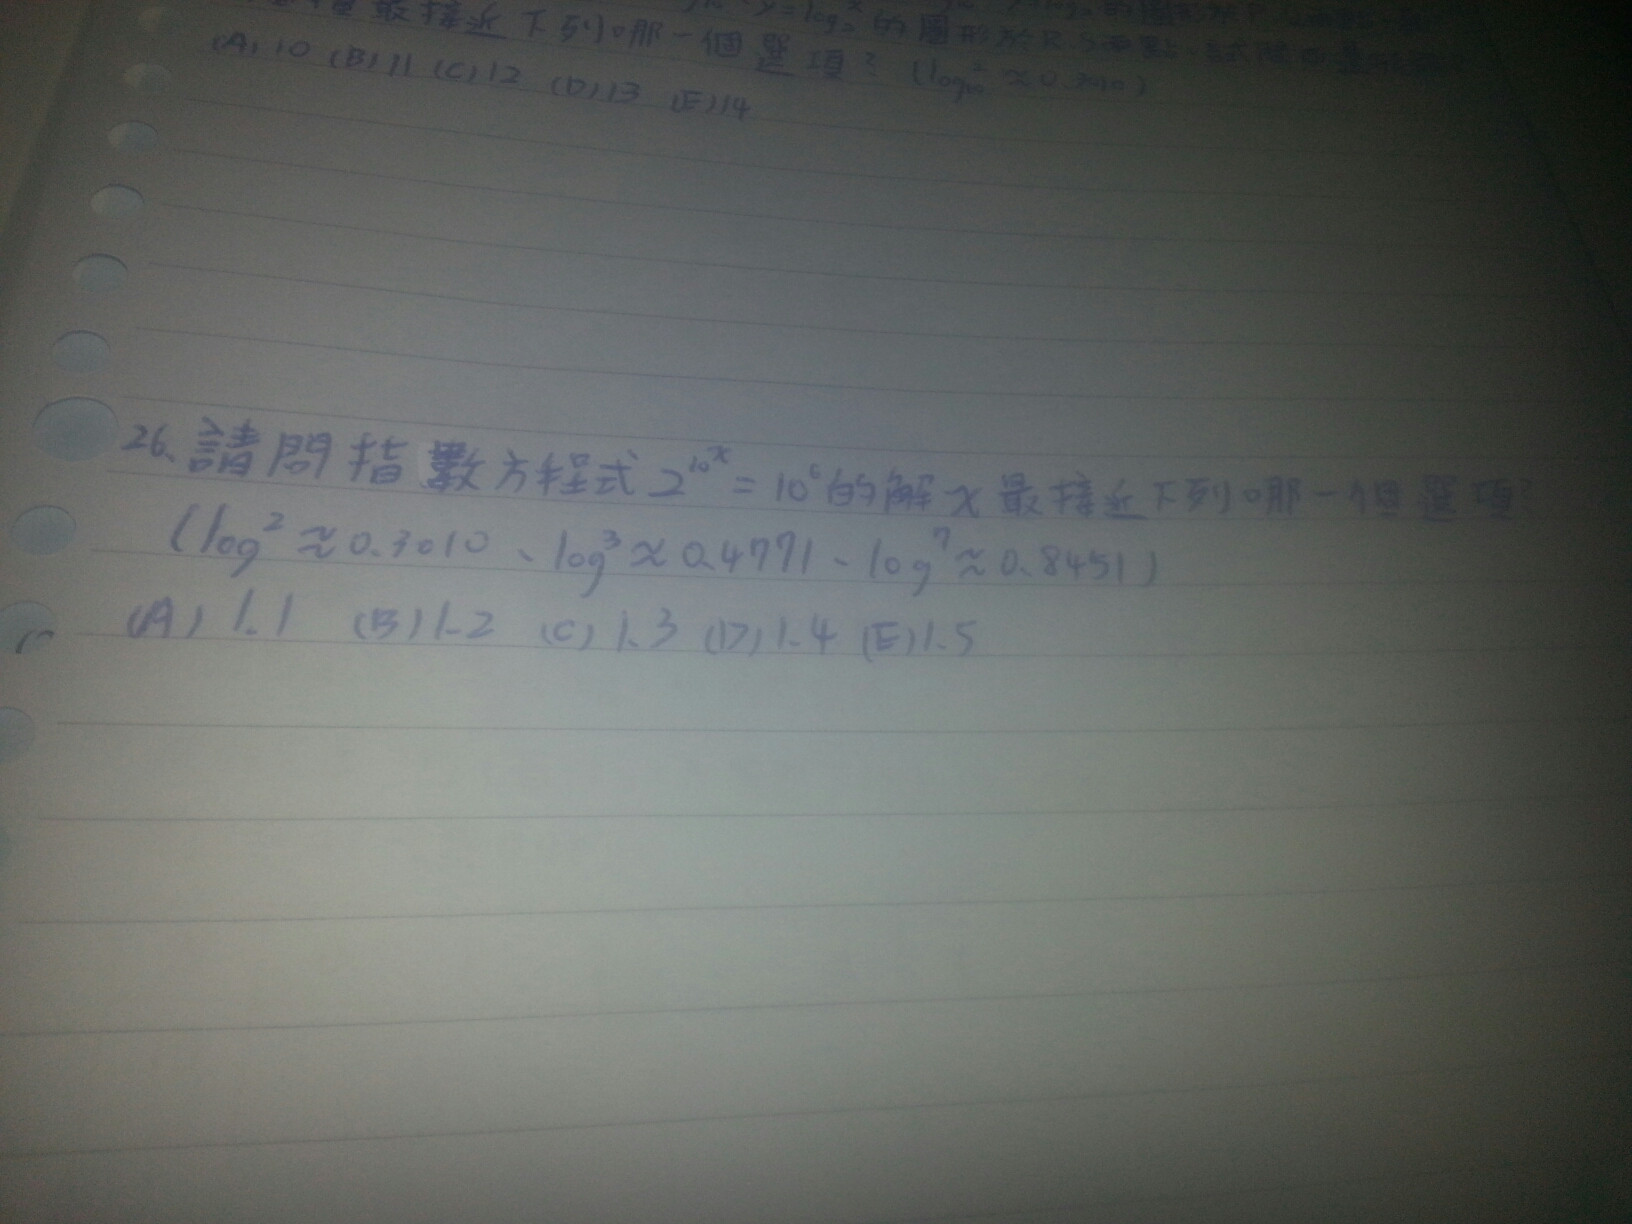 y=log₂ˣ的圖形於R、S兩點
最接近下列哪一個選項？(log₁₀² ≈0.3010)
(A) 10 (B) 11 (C) 12 (D) 13 (E) 14
26、請問指數方程式2^10^x = 10⁶的解x最接近下列哪一個選項？
(log² ≈0.3010、log³ ≈0.4771、log⁷ ≈0.8451)
(A) 1.1 (B) 1.2 (C) 1.3 (D) 1.4 (E) 1.5